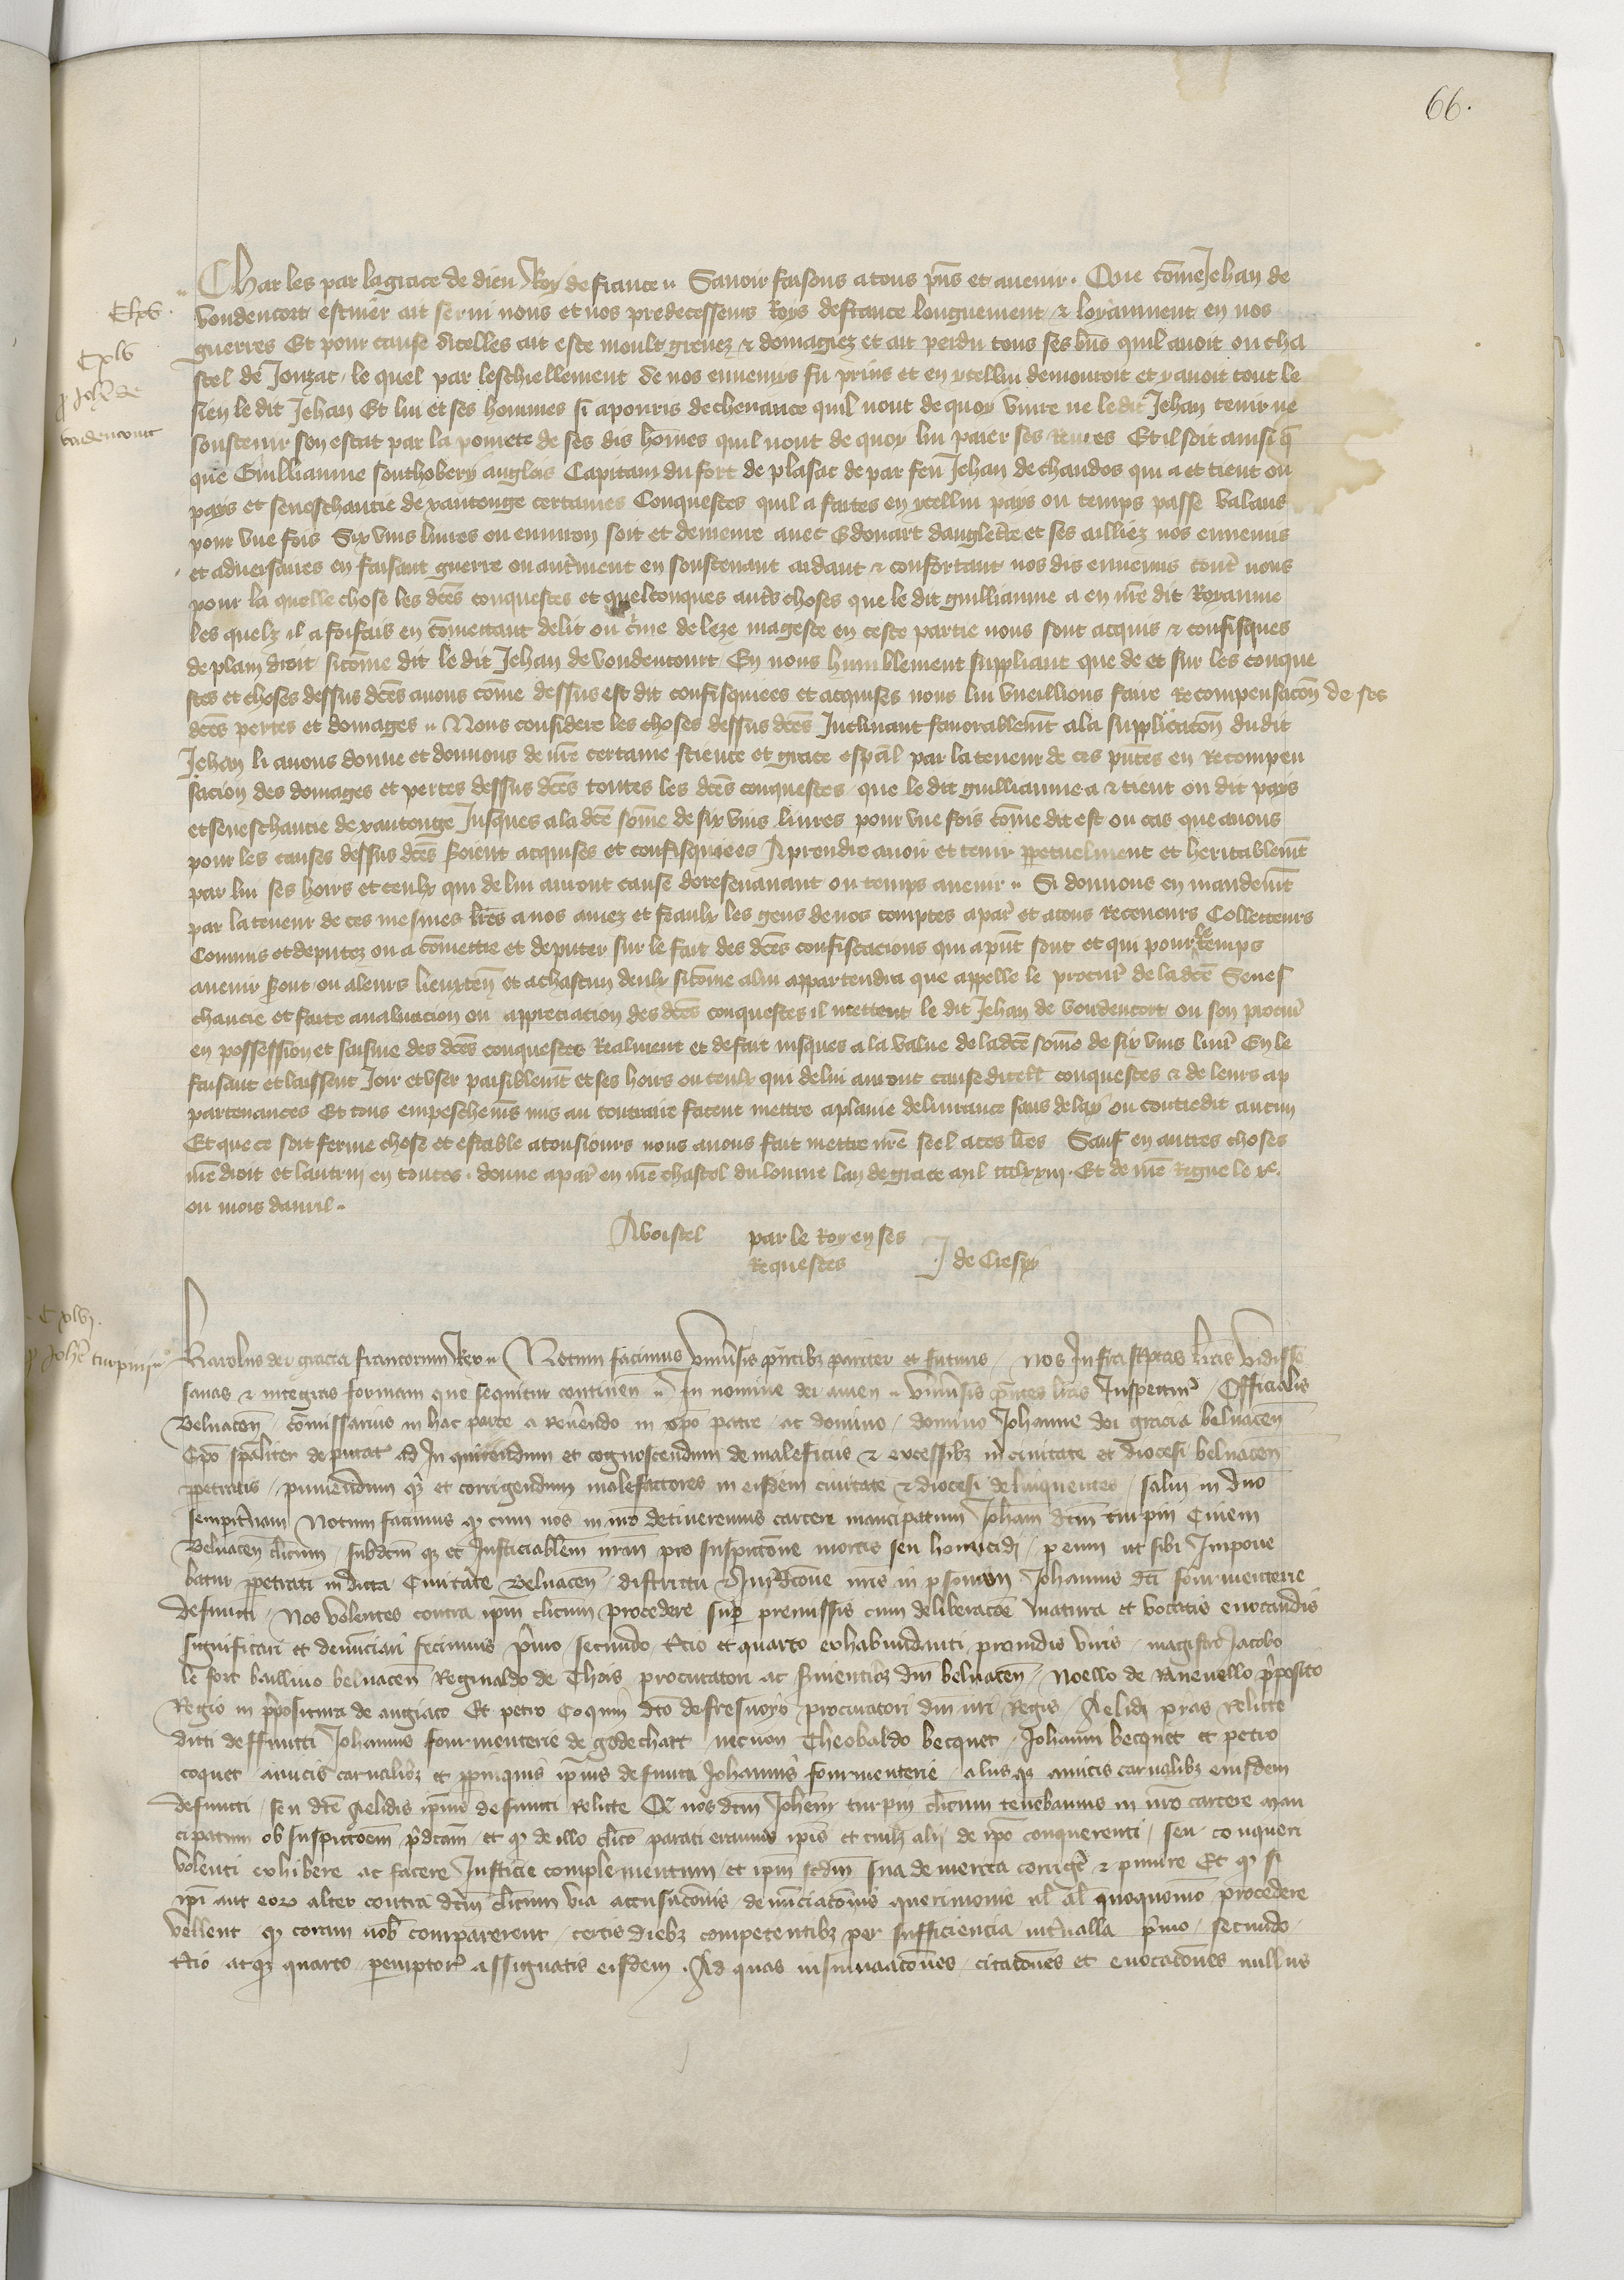 66.
Charles par la grace de dieu Roy de france Savoir faisons a tous pñs et avenir. Que cõme Jehan de
vondencort escuier ait servi nous et nos predecesseurs Roys de france longuement & loyaument en nos
guerres Et pour cause dicelles ait este moult grevez & domagiez et ait perdu tous ses biens quil avoit ou cha
stel de Jonzac le quel par leschiellement de nos ennemis fu prins et en ycellui demouroit et y avoit tout le
sien le dit Jehan Et lui et ses hommes si apouris de chevance quil nont de quoy vivre ne le dit Jehan tenir ne
soustenir son estat par la povrete de ses dis hõmes quil nont de quoy lui paier ses rentes Et il soit ainsi q̃
que Guilliaume southobery anglois Capitain du fort de plasac de par feu Jehan de chandos qui a et tient ou
pays et seneschaucie de xantonge certaines Conquestes quil a faites en ycellui pays ou temps passe valans
pour une fois Six vins livres ou environ soit et demeure avec Edouart dangleterre et ses alliez nos ennemis
et adversaires en faisant guerre ou autrement en soustenant aidant & confortant nos dis ennemis contre nous
pour la quelle chose les dc̃es conquestes et quelconques autres choses que le dit guilliaume a en nr̃e dit Royaume
les quelz il a forfais en cõmettant delit ou crime de leze mageste en ceste partie nous sont acquis & confisques
de plain droit sicõme dit le dit Jehan de vondencourt En nous humblement suppliant que de et sur les conque
stes et choses dessus dc̃es avons cõme dessus est dit confisquiees et acquises nous lui vueillions faire recompensacõn de ses
dc̃es pertes et domages Nous considere les choses dessus dc̃es Inclinant favorablemt̃ a la supplicacõn dudit
Jehan li avons donne et donnons de nr̃e certaine science et grace esp̃al par la teneur de ces pñtes en recompen
sacion des domages et pertes dessus dc̃es toutes les dc̃es conquestes que le dit guilliaume a & tient ou dit pays
et seneschaucie de xantonge Jusques a la dc̃e sõme de six vins livres pour une fois cõme dit est ou cas que avons
pour les causes dessus dc̃es soient acquises et confisquiees A prendre avoir et tenir perpetuelment et heritablemt̃
par lui ses hoirs et ceulx qui de lui auront cause doresenavant ou temps avenir Si donnons en mandemt̃
par la teneur de ces mesmes lr̃es a nos amez et feaulx les gens de nos comptes a par̃ et a tous Receveurs Collecteurs
Commis et deputez ou a cõmettre et deputer sur le fait des dc̃es confiscacions qui a pñt sont et qui pour le temps
avenir seront ou a leurs lieuxten̄ et a chascun deulx sicõme a lui appartendra que appelle le procur̃ de la dc̃e Senes
chaucie et faite avaluacion ou appreciacion des dc̃es conquestes il mettent le dit Jehan de vondencort ou son procur̃
en possession et saisine des dc̃es conquestes Realment et de fait jusques a la value de la dc̃e sõme de six vins livr̃ En le
faisant et laissent Joir et user paisiblemt̃ et ses hoirs ou ceulx qui de lui auront cause dicell̃ conquestes & de leurs ap
partenances Et tous empeschemẽs mis au contraire facent mettre a plaine delivrance sans delay ou contredit aucun
Et que ce soit ferme chose et estable a tousjours nous avons fait mettre nr̃e seel a ces lr̃es Sauf en autres choses
nr̃e droit et lautrui en toutes. donne a par̃ en nr̃e chastel du louvre lan de grace mil ccclxxiij. Et de nr̃e Regne le xe.
ou mois davril.
par le Roy en ses
Requestes J de Crespy
Cxlv
p Joh̃e de
vadencourt
Cxlvj.
p Joh̃e turpin
Karolus dei gracia francorum Rex Notum facimus Universis pñtibz pariter et futuris nos Infrascriptas lr̃as vidisse
sanas & integras formam que sequitur continen̄ In nomine dei amen univ̾sis pñtes lr̃as Inspectur̃ Officialis
Belvacen̄ cõmissarius in hac parte a rev̾endo in xp̃o patre ac domino domino Johanne dei gracia belvacen̄
Ep̃o sp̃aliter deputat̾ ad Inquirendum et cognoscendum de maleficiis & excessibz in civitate et diocesi belvacen̄
p̱petratis puniendum qz et corrigendum malefactores in eisdem civitate & diocesi delinquentes salut̃ in dño
sempit̾nam Notum facimus qz cum nos in nr̃o detineremus carcere mancipatum Joham̃ dc̃m turpin Civem
Belvacen̄ cl̃icum subdc̃m qz et Justiciabilem nr̃m pro suspicõne mortis seu homicidij p eum ut sibi Impone
batur p̱petrati in dicta Civitate Belvacen̄ districtu & Jurisdicõne nr̃is in p̱sonam Johannis dc̃i fourmenterie
defuncti Nos volentes contra ip̃m cl̃icum procedere sup̱ premissis cum deliberacõe matura et vocatis evocandis
significari et denunciari fecimus p̾mo secundo t̾cio et quarto exhabundanti providis viris magistro Jacobo
le fort baillivo belvacen̄ Reginaldo de Thois procuratori ac servientibz dñi belvacen̄ Noello de Ranevello p̾posito
Regio in p̾positura de angiaco Et petro Coquin dc̃o de fresnoys procuratori dñi nr̃i Regis Aelidi pras relicte
dicti deffuncti Johannis fourmenterie de godechart necnon Theobaldo becquet Johanni becquet et petro
coquet amicis carnalibz et p̱pinquis ip̃ius defuncti Johannis fourmenterie aliis qz amicis carnalibz eiusdem
defuncti seu dc̃e Aelidis ip̃ius defuncti relicte Qz nos dc̃m Joh̃em turpin cl̃icum tenebamus in nr̃o carcere man
cipatum ob suspicõem p̾dc̃am et qz de illo cl̃ico parati eramus ip̃is et cuilz alij de ip̃o conquerenti seu conqueri
volenti exhibere ac facere Justicie complementum et ip̃m scd̃m sua demerita corrig̾e & punire Et qz si
ip̃i aut eorz alter contra dc̃m cl̃icum via accusacõnis denunciacõnis querimonie ul̃ al̃ quoquomõ procedere
vellent qz coram nob̃ comparerent certis diebz competentibz per sufficiencia int̾valla p̾mo secundo
t̾cio atqz quarto peremptor̃ assignatis eisdem. Ad quas insinuacõnes citacõnes et evocacõnes nullus